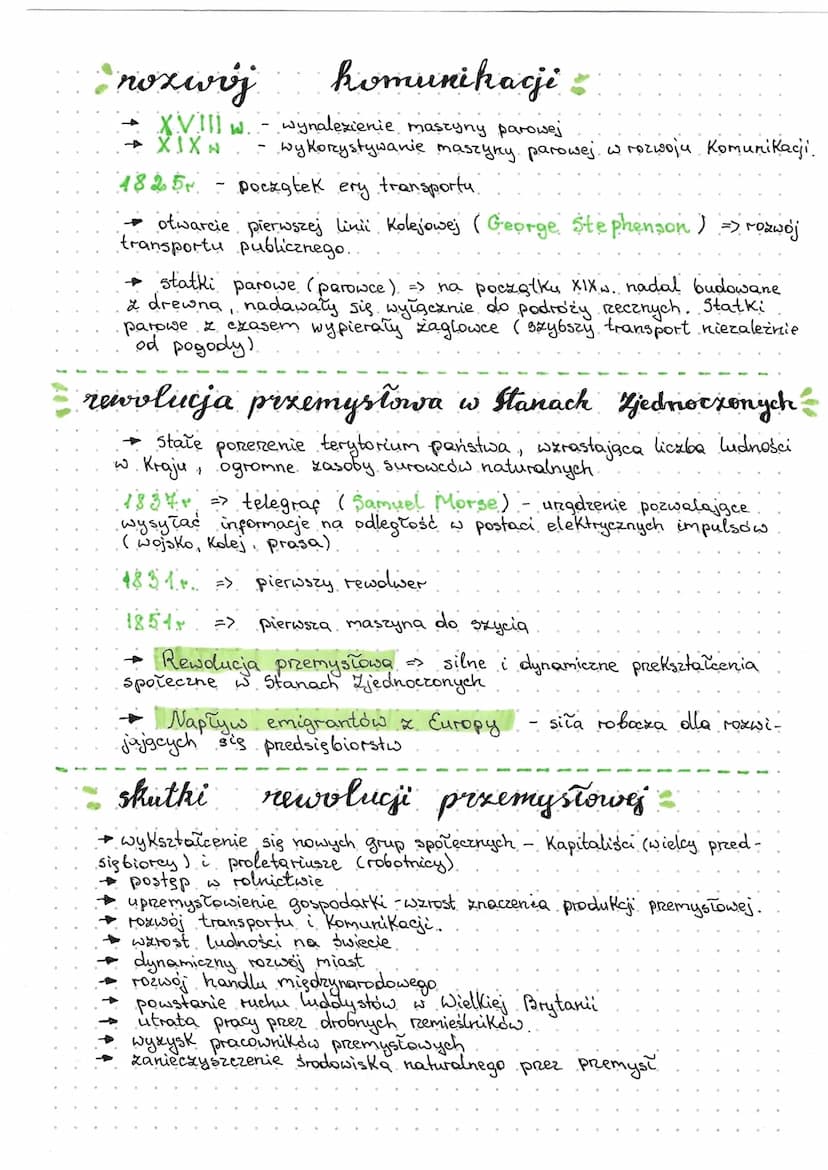 rozwój komunikacji
→ XVIII w. - wynalezienie maszyny parowej
→ XIX w - wykorzystywanie maszyny parowej w rozwoju komunikacji.
1825r. - początek ery transportu
→ otwarcie pierwszej linii kolejowej (George Stephenson) => rozwój
transportu publicznego.
→ statki parowe (parowce) => na początku XIX w. nadal budowane
z drewna, nadawały się wyłącznie do podróży rzecznych. Statki
parowe z czasem wypierały żaglowce (szybszy transport niezależnie
od pogody)
rewolucja przemysłowa w Stanach Zjednoczonych
→ stałe porerenie terytorium państwa, wzrastająca liczba ludności
w kraju, ogromne zasoby surowców naturalnych
1837r. => telegraf (Samuel Morse) - urządzenie pozwalające
wysyłać informacje na odległość w postaci elektrycznych impulsów
(wojsko, kolej, prasa)
1831r. => pierwszy rewolwer
1851r => pierwsza maszyna do szycia
→ Rewolucja przemysłowa => silne i dynamiczne przekształcenia
społeczne w Stanach Zjednoczonych
→ Napływ emigrantów z Europy - siła robocza dla rozwi-
jających się przedsiębiorstw
skutki rewolucji przemysłowej
→ wykształcenie się nowych grup społecznych - kapitaliści (wielcy przed-
siębiorcy) i proletariusze (robotnicy)
→ postęp w rolnictwie
→ uprzemysłowienie gospodarki - wzrost znaczenia produkcji przemysłowej.
→ rozwój transportu i komunikacji.
→ wzrost ludności na świecie
→ dynamiczny rozwój miast
→ rozwój handlu międzynarodowego
→ powstanie ruchu luddystów w Wielkiej Brytanii
→ utrata pracy przez drobnych rzemieślników.
→ wyzysk pracowników przemysłowych
→ zanieczyszczenie środowiska naturalnego przez przemysł